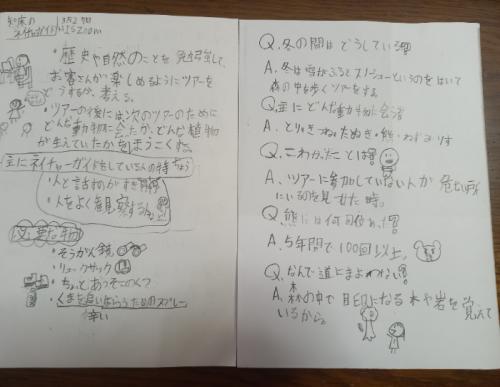 知床の
ネイチャーガイド
3月2
in Zoom
・歴史や自然のことを勉強して、
お客さんが楽しめるようにツアーを
どうするか、考える。
・ツアーの後には次のツアーのために
どんな動物に会たか、どんな植物
が生えていたかをきろくする。
主にネイチャーガイドをしている人の特ちょう
・人と話すのがすき
・人をよく観察する
必要な物
・そうがん鏡
・リュックサック
・ちょっとあつぞこのくつ
・くまを追いはらうためのスプレー
辛い
Q.冬の間はどうしている?
A.冬は雪がふるとスノーシューというのをはいて
森の中を歩くツアーをする。
Q.主にどんな動物に会う?
A.とりきつねたぬき・熊・ねずみりす
Q.こわかったことは?
A.ツアーに参加していない人が危ない所
にいるのを見せた時。
Q.熊には何回会った?
A.5年間で100回以上。
Q.なんで道にまよわない?
A.森の中で目印になる木や岩を覚えて
いるから。